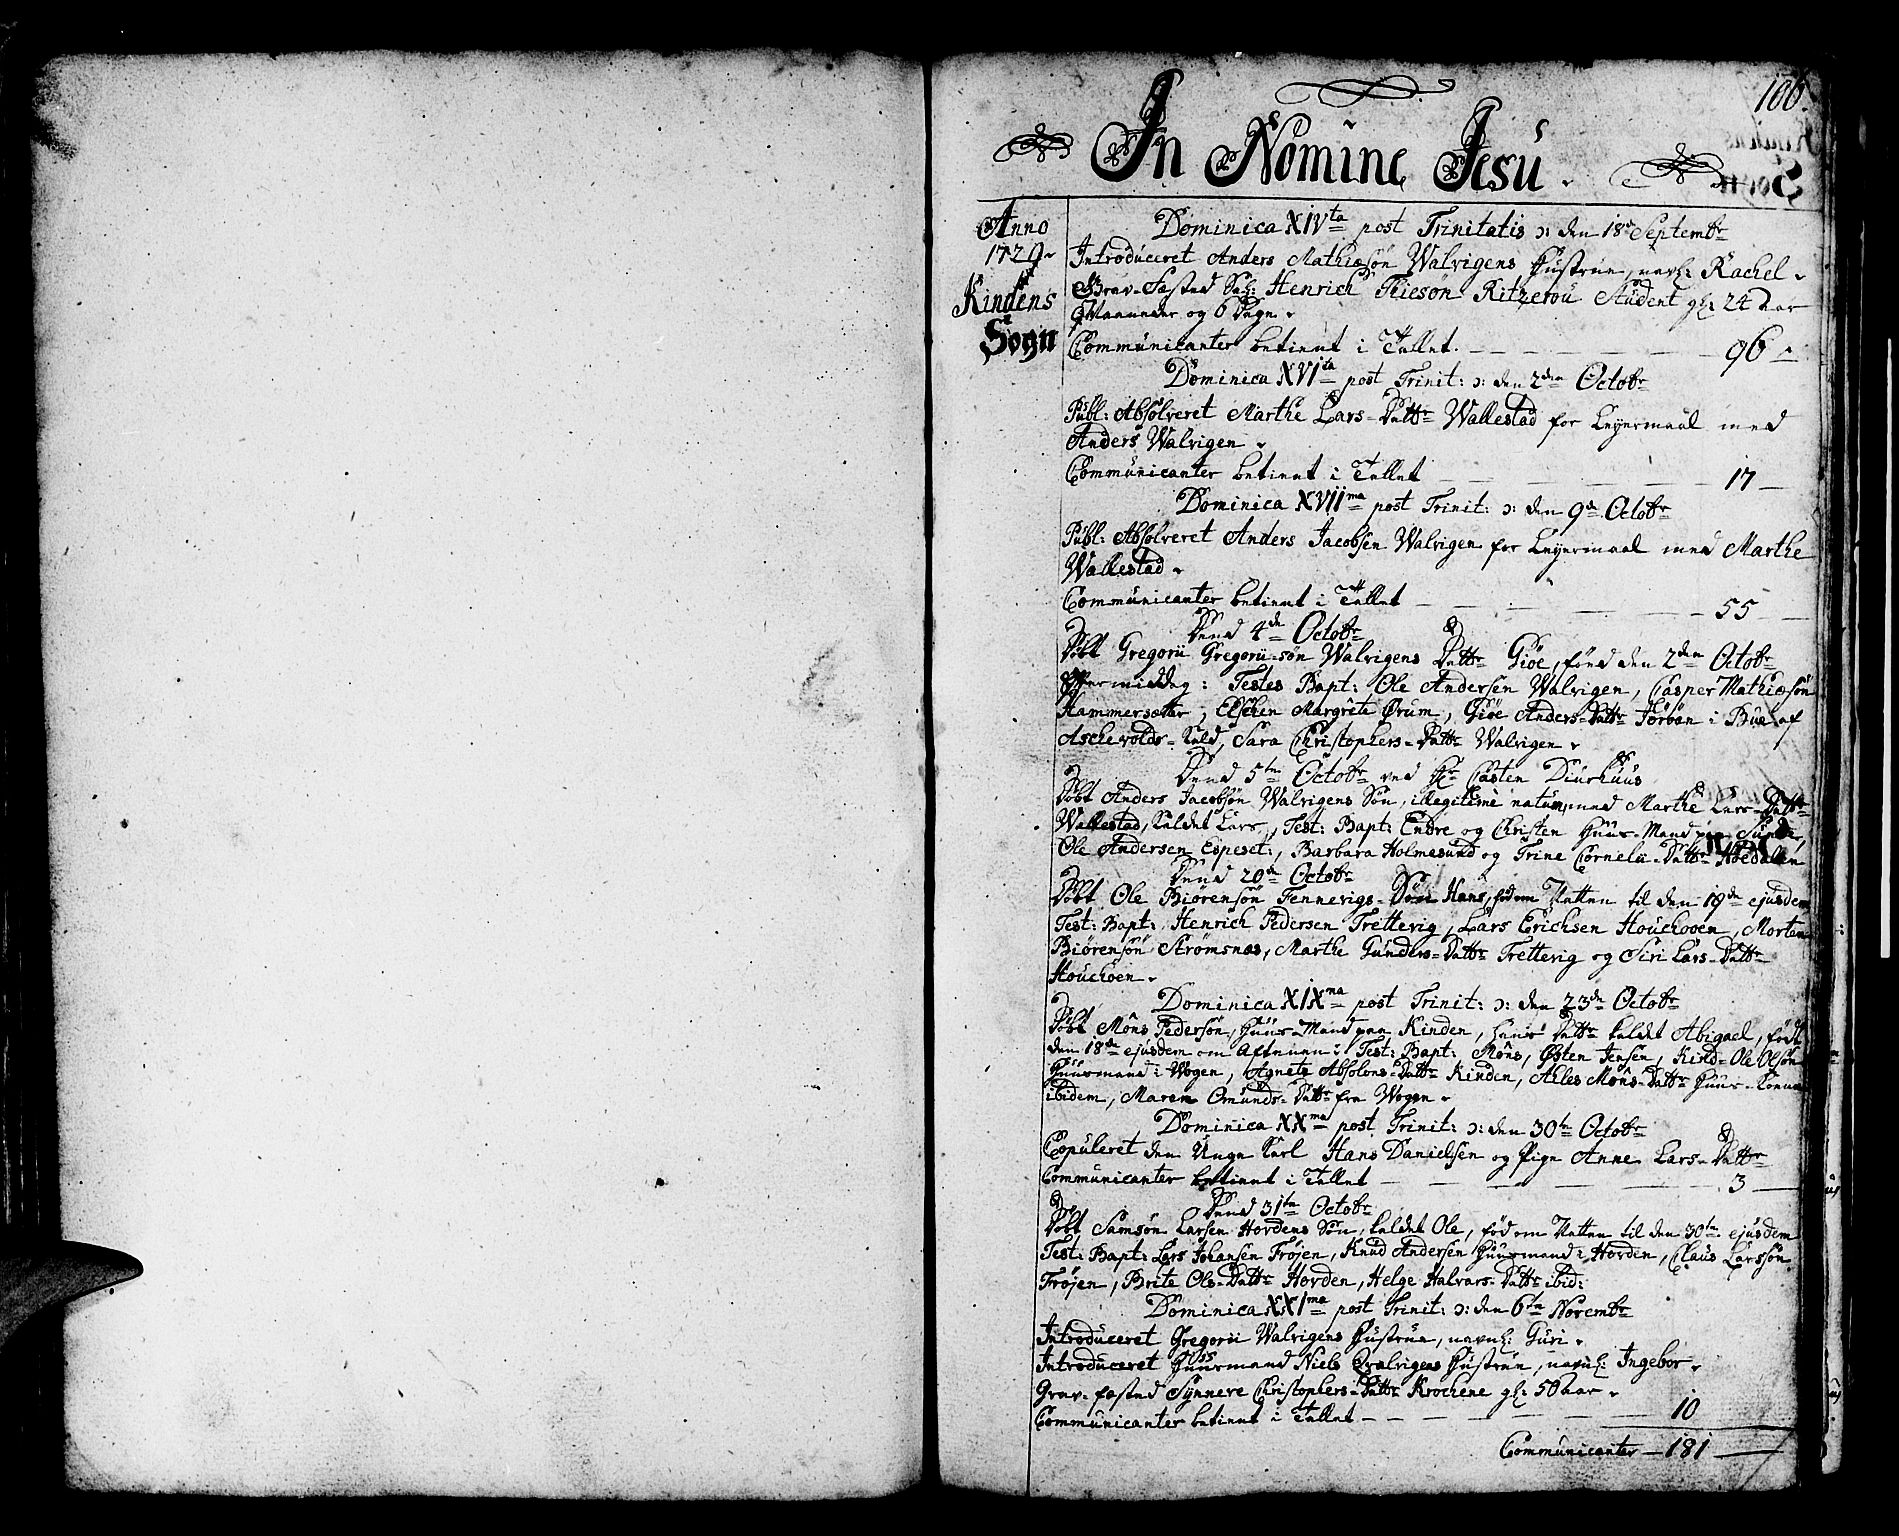 106.
In Nomine Jesu.
Anno
1729.
Kindens
Sogn
Dominica XIV ta post Trinitatis ɔ: den 18de Septembr
Introduceret Anders Mathiæsøn Walvigens Hustrue, navnl: Rachel.
Grav-fæsted Sal: Henrich Thiesøn Ritzerou Student gl: 24 Aar
Maaneder og 6 Dage.
Communicanter betient i Tallet. 96.
Dominica XVI ta post Trinit: ɔ: den 2den Octobr
Publ: Absolveret Marthe Lars-Dattr Wallestad for Leyermaal med
Anders Walvigen.
Communicanter betient i Tallet 17
Dominica XVII ma post Trinit: ɔ: den 9de Octobr
Publ: Absolveret Anders Jacobsen Walvigen for Leyermaal med Marthe
Wallestad.
Communicanter betient i Tallet 55
Dend 4de Octobr
Døbt Gregorii Gregorii-søn Walvigens Dattr Giøe, fød den 2den Octobr
Eftermiddag: Testes Bapt: Ole Andersen Walvigen, Casper Mathiæsøn
Hammersætter, Elschen Margrete Ørum, Giøe Anders-Dattr i Bue af
Aschevolds-Kald, Sara Christophers-Dattr Walvigen.
Dend 5te Octobr ved Hr Casten Diurhuus
Døbt Anders Jacobsøn Walvigens Søn, illegitime natum, med Marthe Lars-Dattr
Wallestad, kaldet Lars, Test: Bapt: Endre og Christen Huus-Mand paa
Ole Andersen Espeset, Barbara Holmesund og Trine Cornelii-Dattr
Dend 20de Octobr
Døbt Ole Biørensøn Tennevigs-Søn Hans, fød om Natten til den 19de ejusdem
Test: Bapt: Henrich Pedersen Trettevig, Lars Erichsen Houchooen, Morten
Biørensøn Strømsnæs, Marthe Gunders-Dattr Trettevig og Siri Lars-Dattr
Houchoen.
Dominica XIX ma post Trinit: ɔ: den 23de Octobr
Døbt Mons Pedersøn, Huus-Mand paa Kinden, hans Dattr kaldet Abigael, født
den 18de ejusdem om Aftenen: Test: Bapt: Mons, Østen Jensen, Kind-Ole Olsøn
Huusmand i Wogen, Agnete Absolons-Dattr Kinden, Ales Mons-Dattr Huus-Konne
ibidem, Maren Omunds-Dattr fra Wogen.
Dominica XX ma post Trinit: ɔ: den 30te Octobr
Copuleret den Unge Karl Hans Danielsen og Pige Anne Lars-Dattr
Communicanter betient i Tallet 3
Dend 31te Octobr
Døbt Samson Larsen Hordens Søn, kaldet Ole, fød om Natten til den 30te ejusdem
Test: Bapt: Lars Johansen Frøjen, Knud Andersen Huusmand i Horden, Claus Larssøn
Frøjen, Brite Ols-Dattr Horden, Helge Halvars-Dattr ibid:
Dominica XXI ma post Trinit: ɔ: den 6te Novembr
Introduceret Gregorii Walvigens Hustrue, navnl: Guri.
Introduceret Huusmand Niels Qvalvigens Hustrue, navnl: Ingebor.
Grav-fæsted Synnere Christophers-Dattr Krochene gl: 50 aar.
Communicanter betient i Tallet 10
Communicanter 181